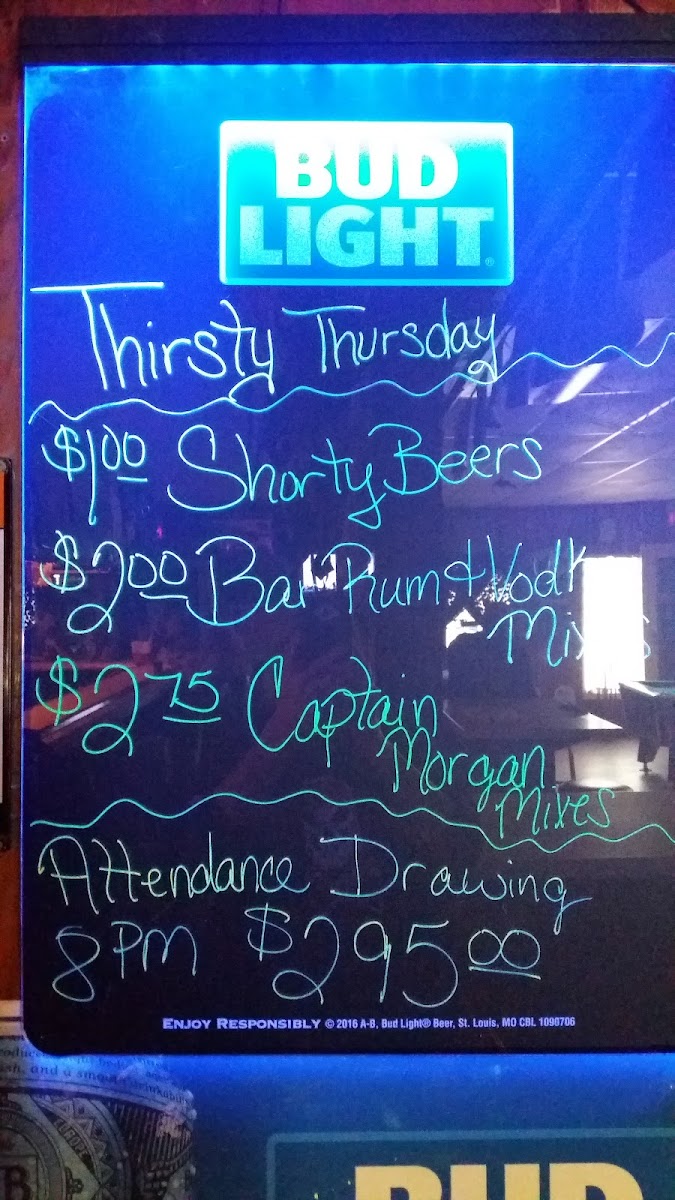 BUD
LIGHT®
Thirsty Thursday
$1.00 Shorty Beers
$2.00 Bar Rum & Vodka
Mixes
$2.75 Captain
Morgan
Mixes
Attendance Drawing
8 PM $295.00
ENJOY RESPONSIBLY © 2016 A-B, Bud Light® Beer, St. Louis, MO CBL 1090706
BUD